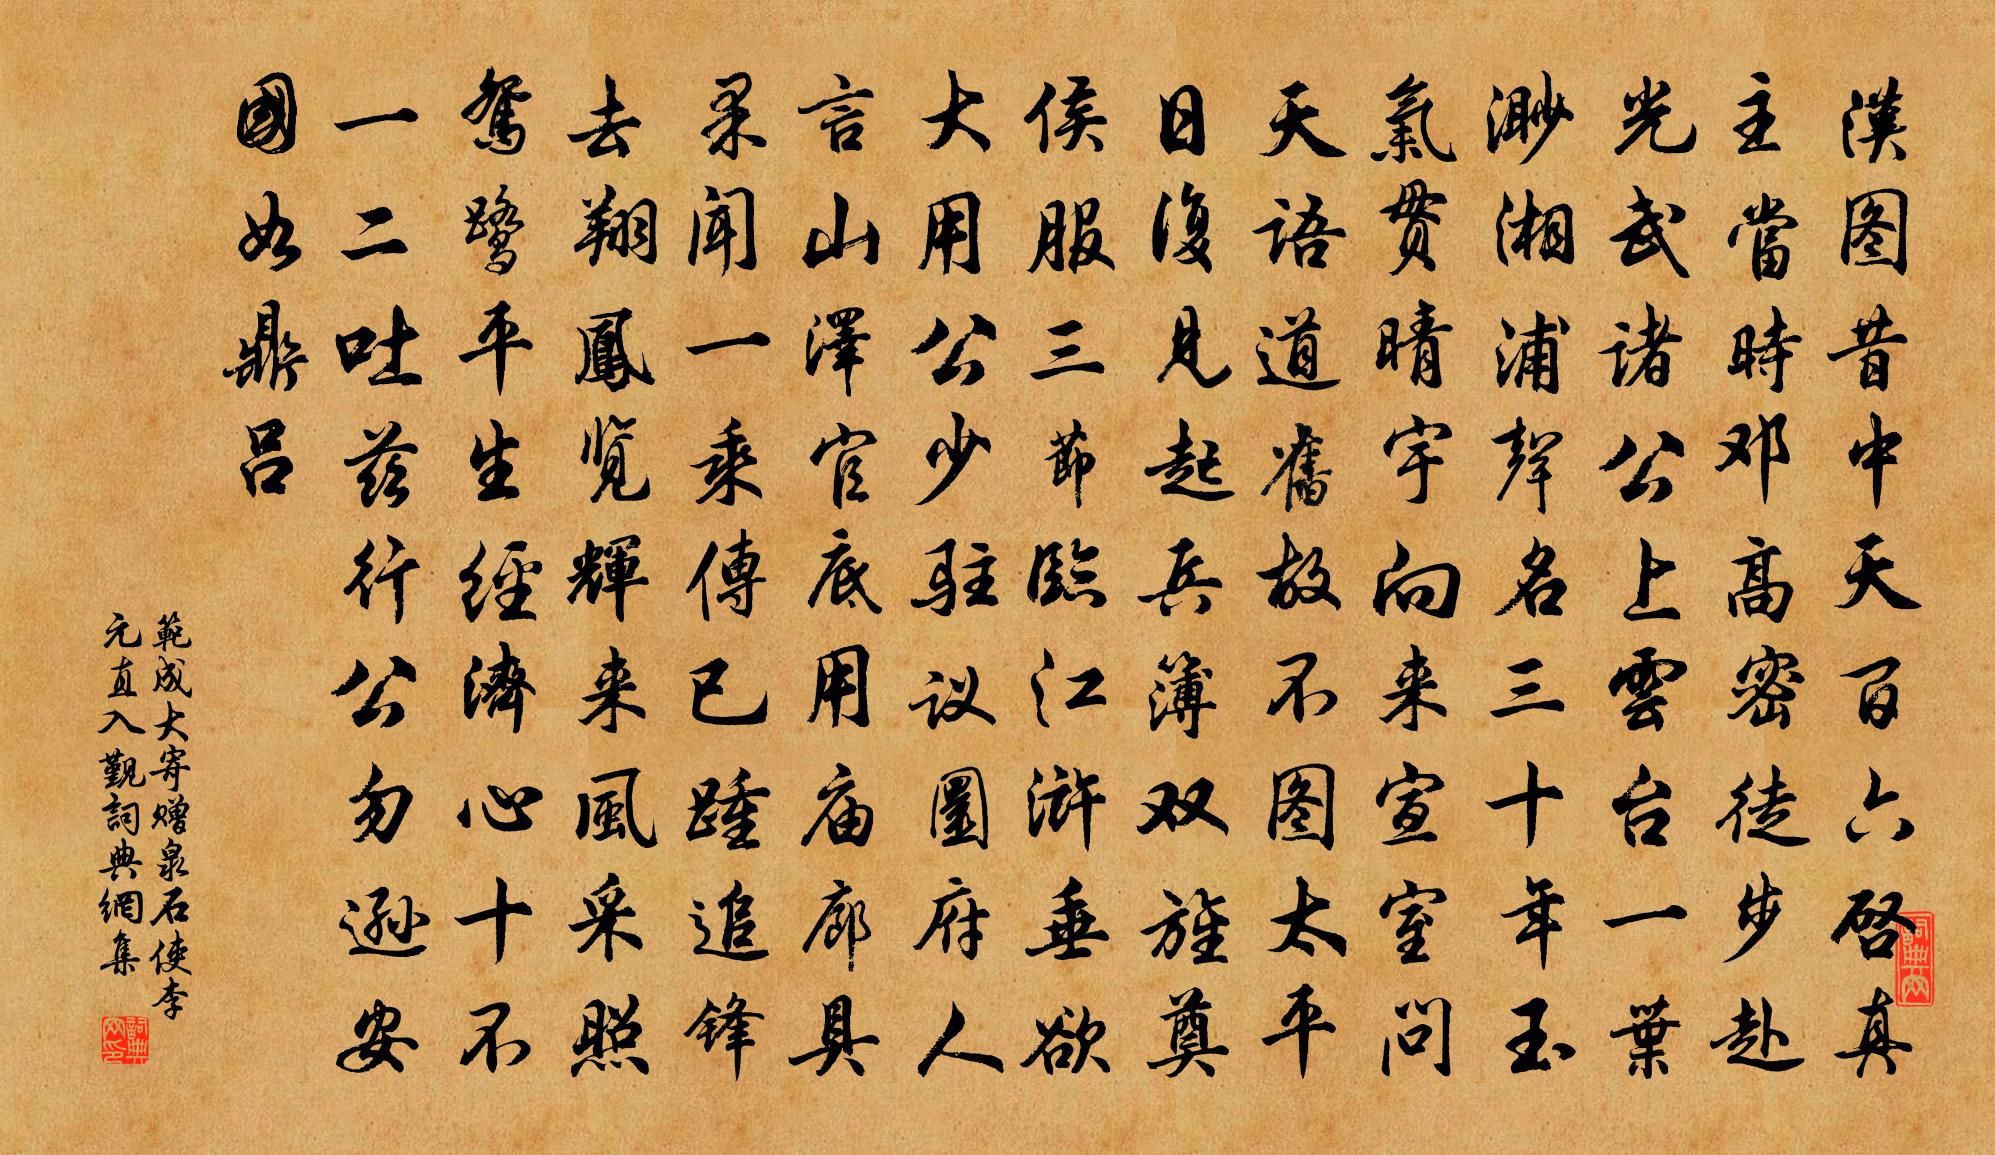 漢图昔中天百六啓真
主當時邓高密徒步赴
光武诸公上雲台一葉
渺湘浦聲名三十年玉
氣贯晴宇向来宣室问
天語道舊故不图太平
日復见起兵簿双旌奠
侯服三節臨江浒垂欲
大用公少駐议圜府人
言山澤官底用庙廊具
果闻一乘傳已踵追锋
去翔鳳览輝来風采照
鴛鹭平生經濟心十不
一二吐兹行公勿遜安
國如鼎吕
範成大寄赠泉石使李
元直入覲詞典網集
詞典网
詞典网印